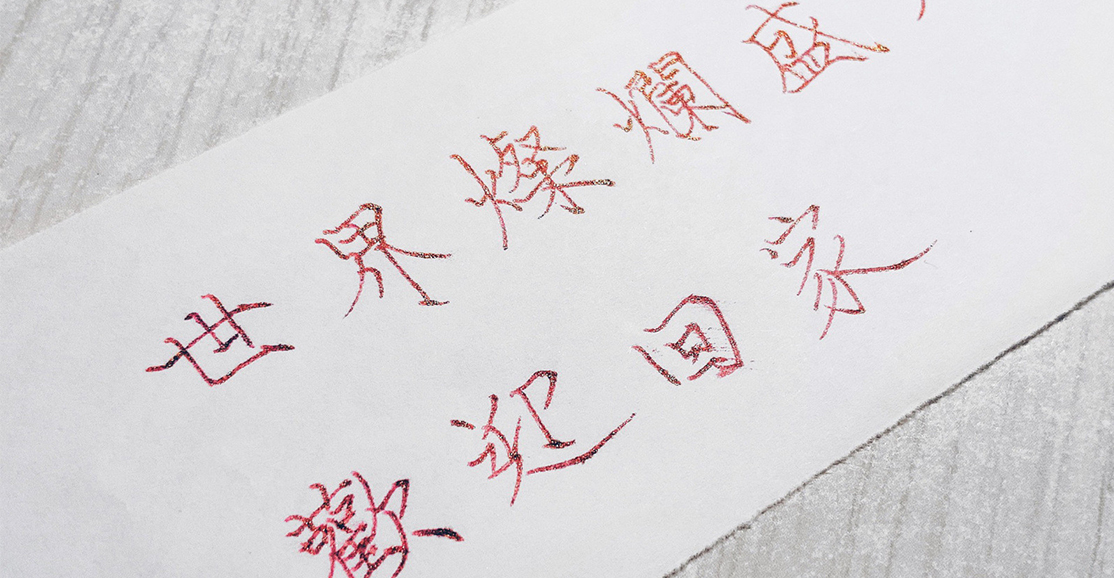 世界燦爛盛
歡迎回家